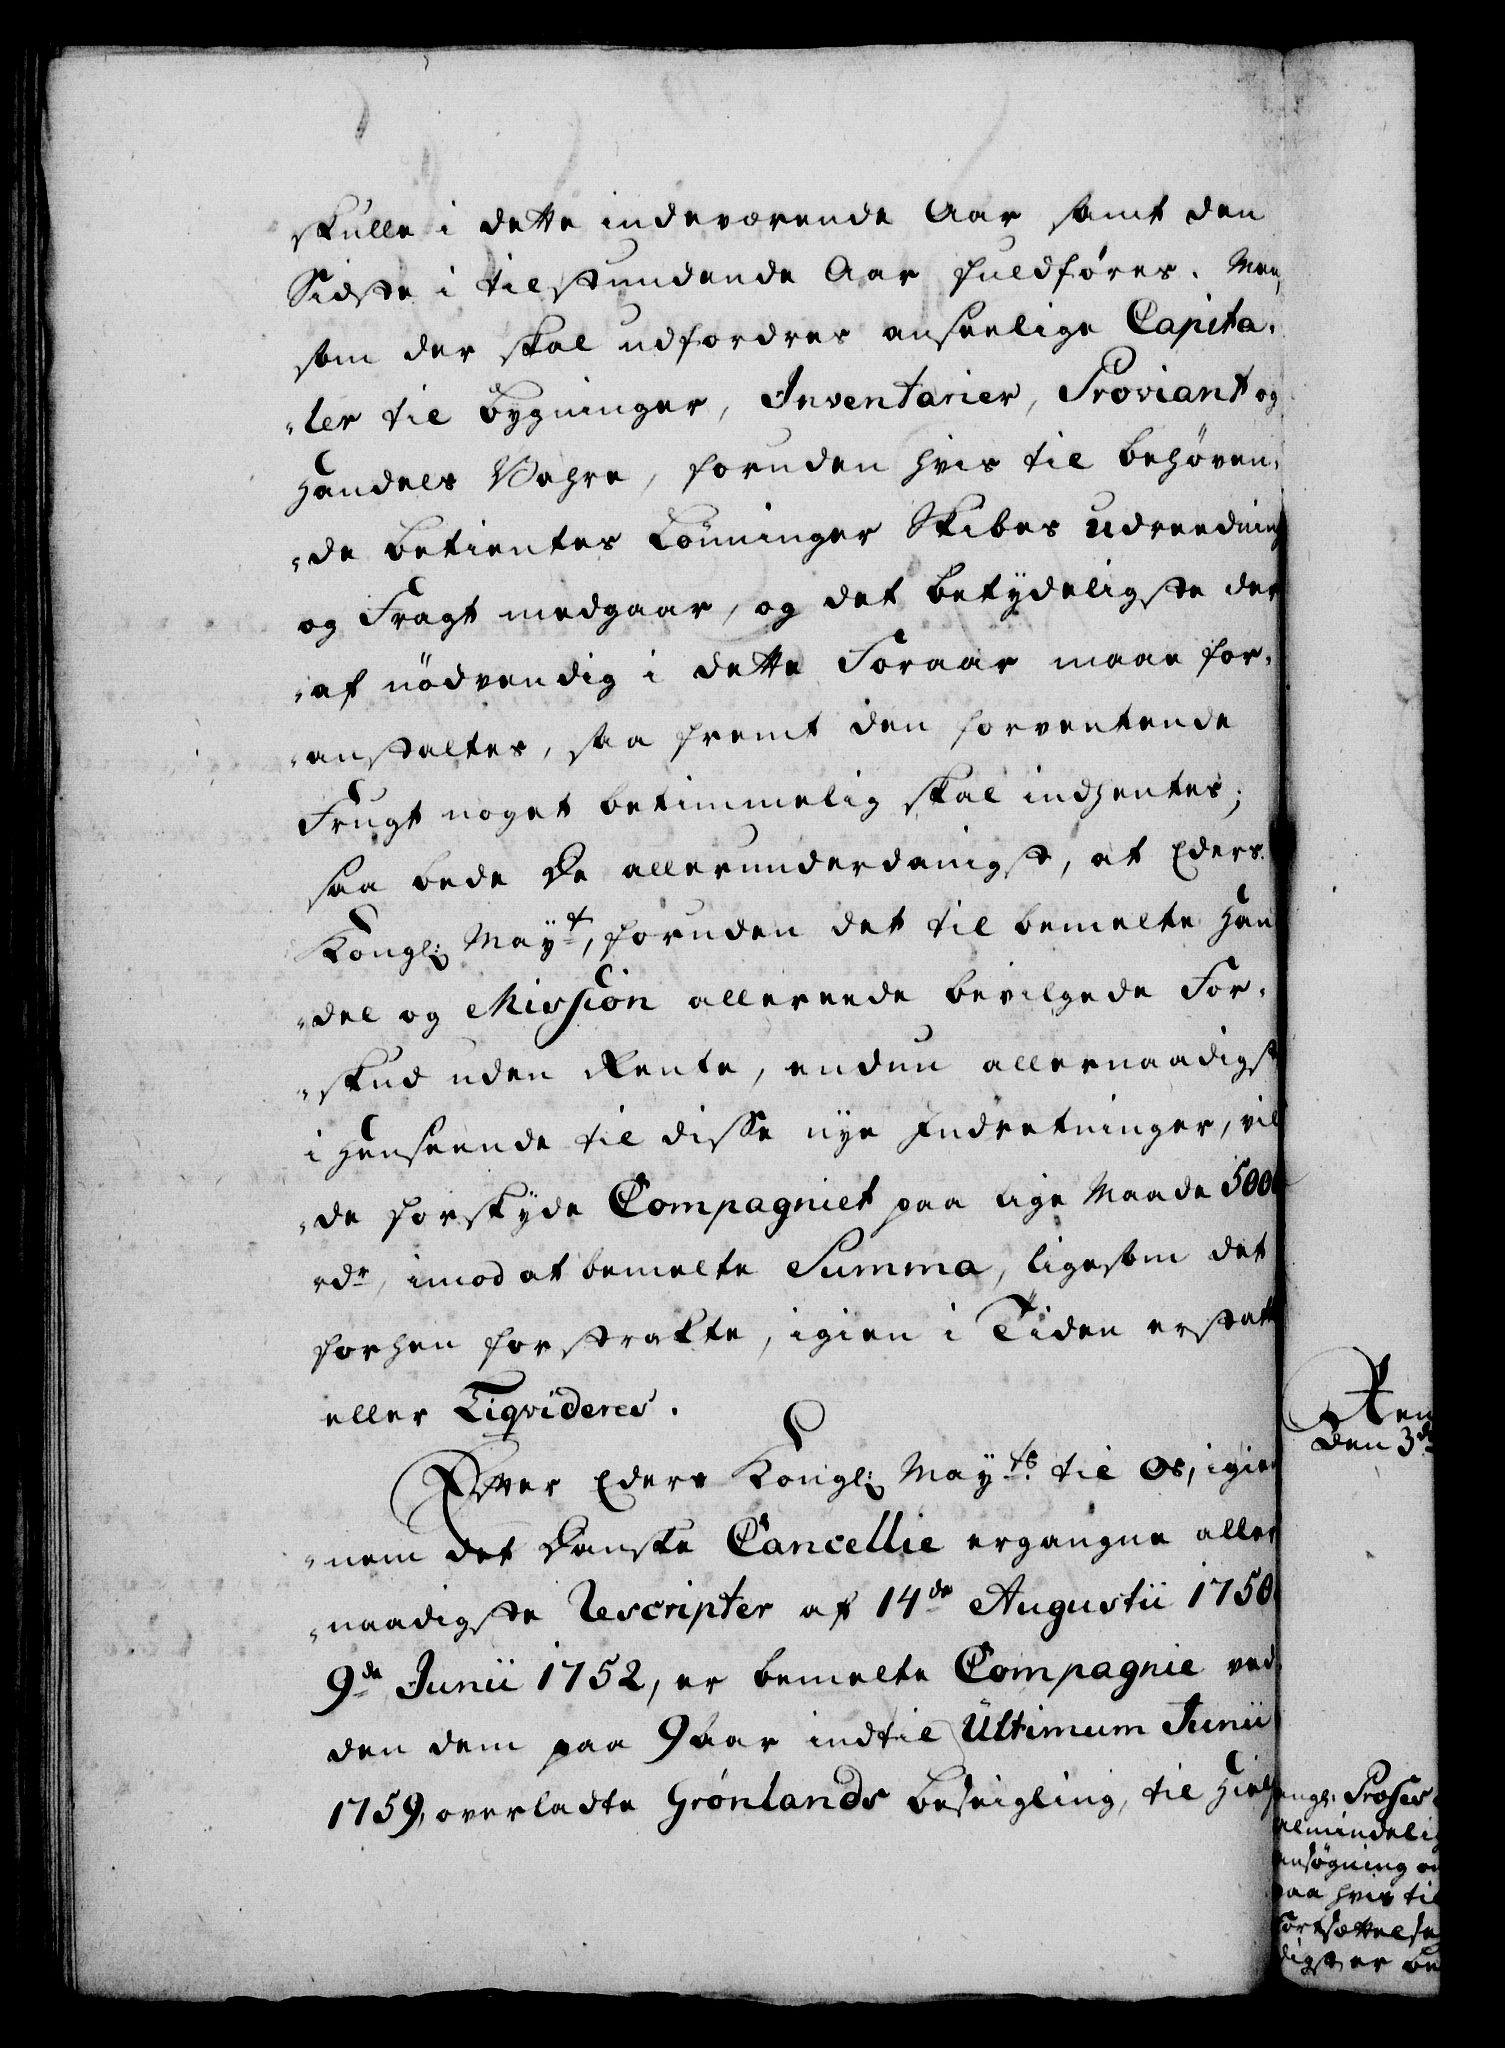 skulle i dette indeværende Aar samt den
Sidste i tilstundende Aar fuldføres. Men,
som der skal udfordres anseelige Capita„
„ler til Bygninger, Inventarier, Proviant og
Handels Vahre, foruden hvis til behøven„
„de betientes Lönninger Skibes Udreedning
og Fragt medgaar, og det betydeligste der
„af nödvendig i dette Foraar maae for„
„anstaltes, saa fremt den forventende
Frugt noget betimmelig skal indhentes;
saa bede De allerunderdanigst, at Eders
Kongl: Mayt, foruden det til bemelte Han
„del og Mission allereede bevilgede For„
„skud uden Rente, endnu allernaadigst
i Henseende til disse nye Indretninger, vil
„de forskyde Compagniet paa lige Maade 5000
rdr, imod at bemelte Summa, ligesom det
forhen forstrakte, igien i Tiden erstatt
eller Liqvideres.
Efter Eders Kongl: Mayts til Os, igien
„nem det Danske Cancellie ergangne aller
„naadigste Rescripter af 14de Augustii 1750
9de Junii 1752, er bemelte Compagnie ved
den dem paa 9 Aar indtil Ultimum Junii
1759, overladte Grønlands beseigling, til Hielp
Ren
Den 3de
engl: Proses
almindelig
ansøgning o
paa hvis til
fortsættelse
digst er be